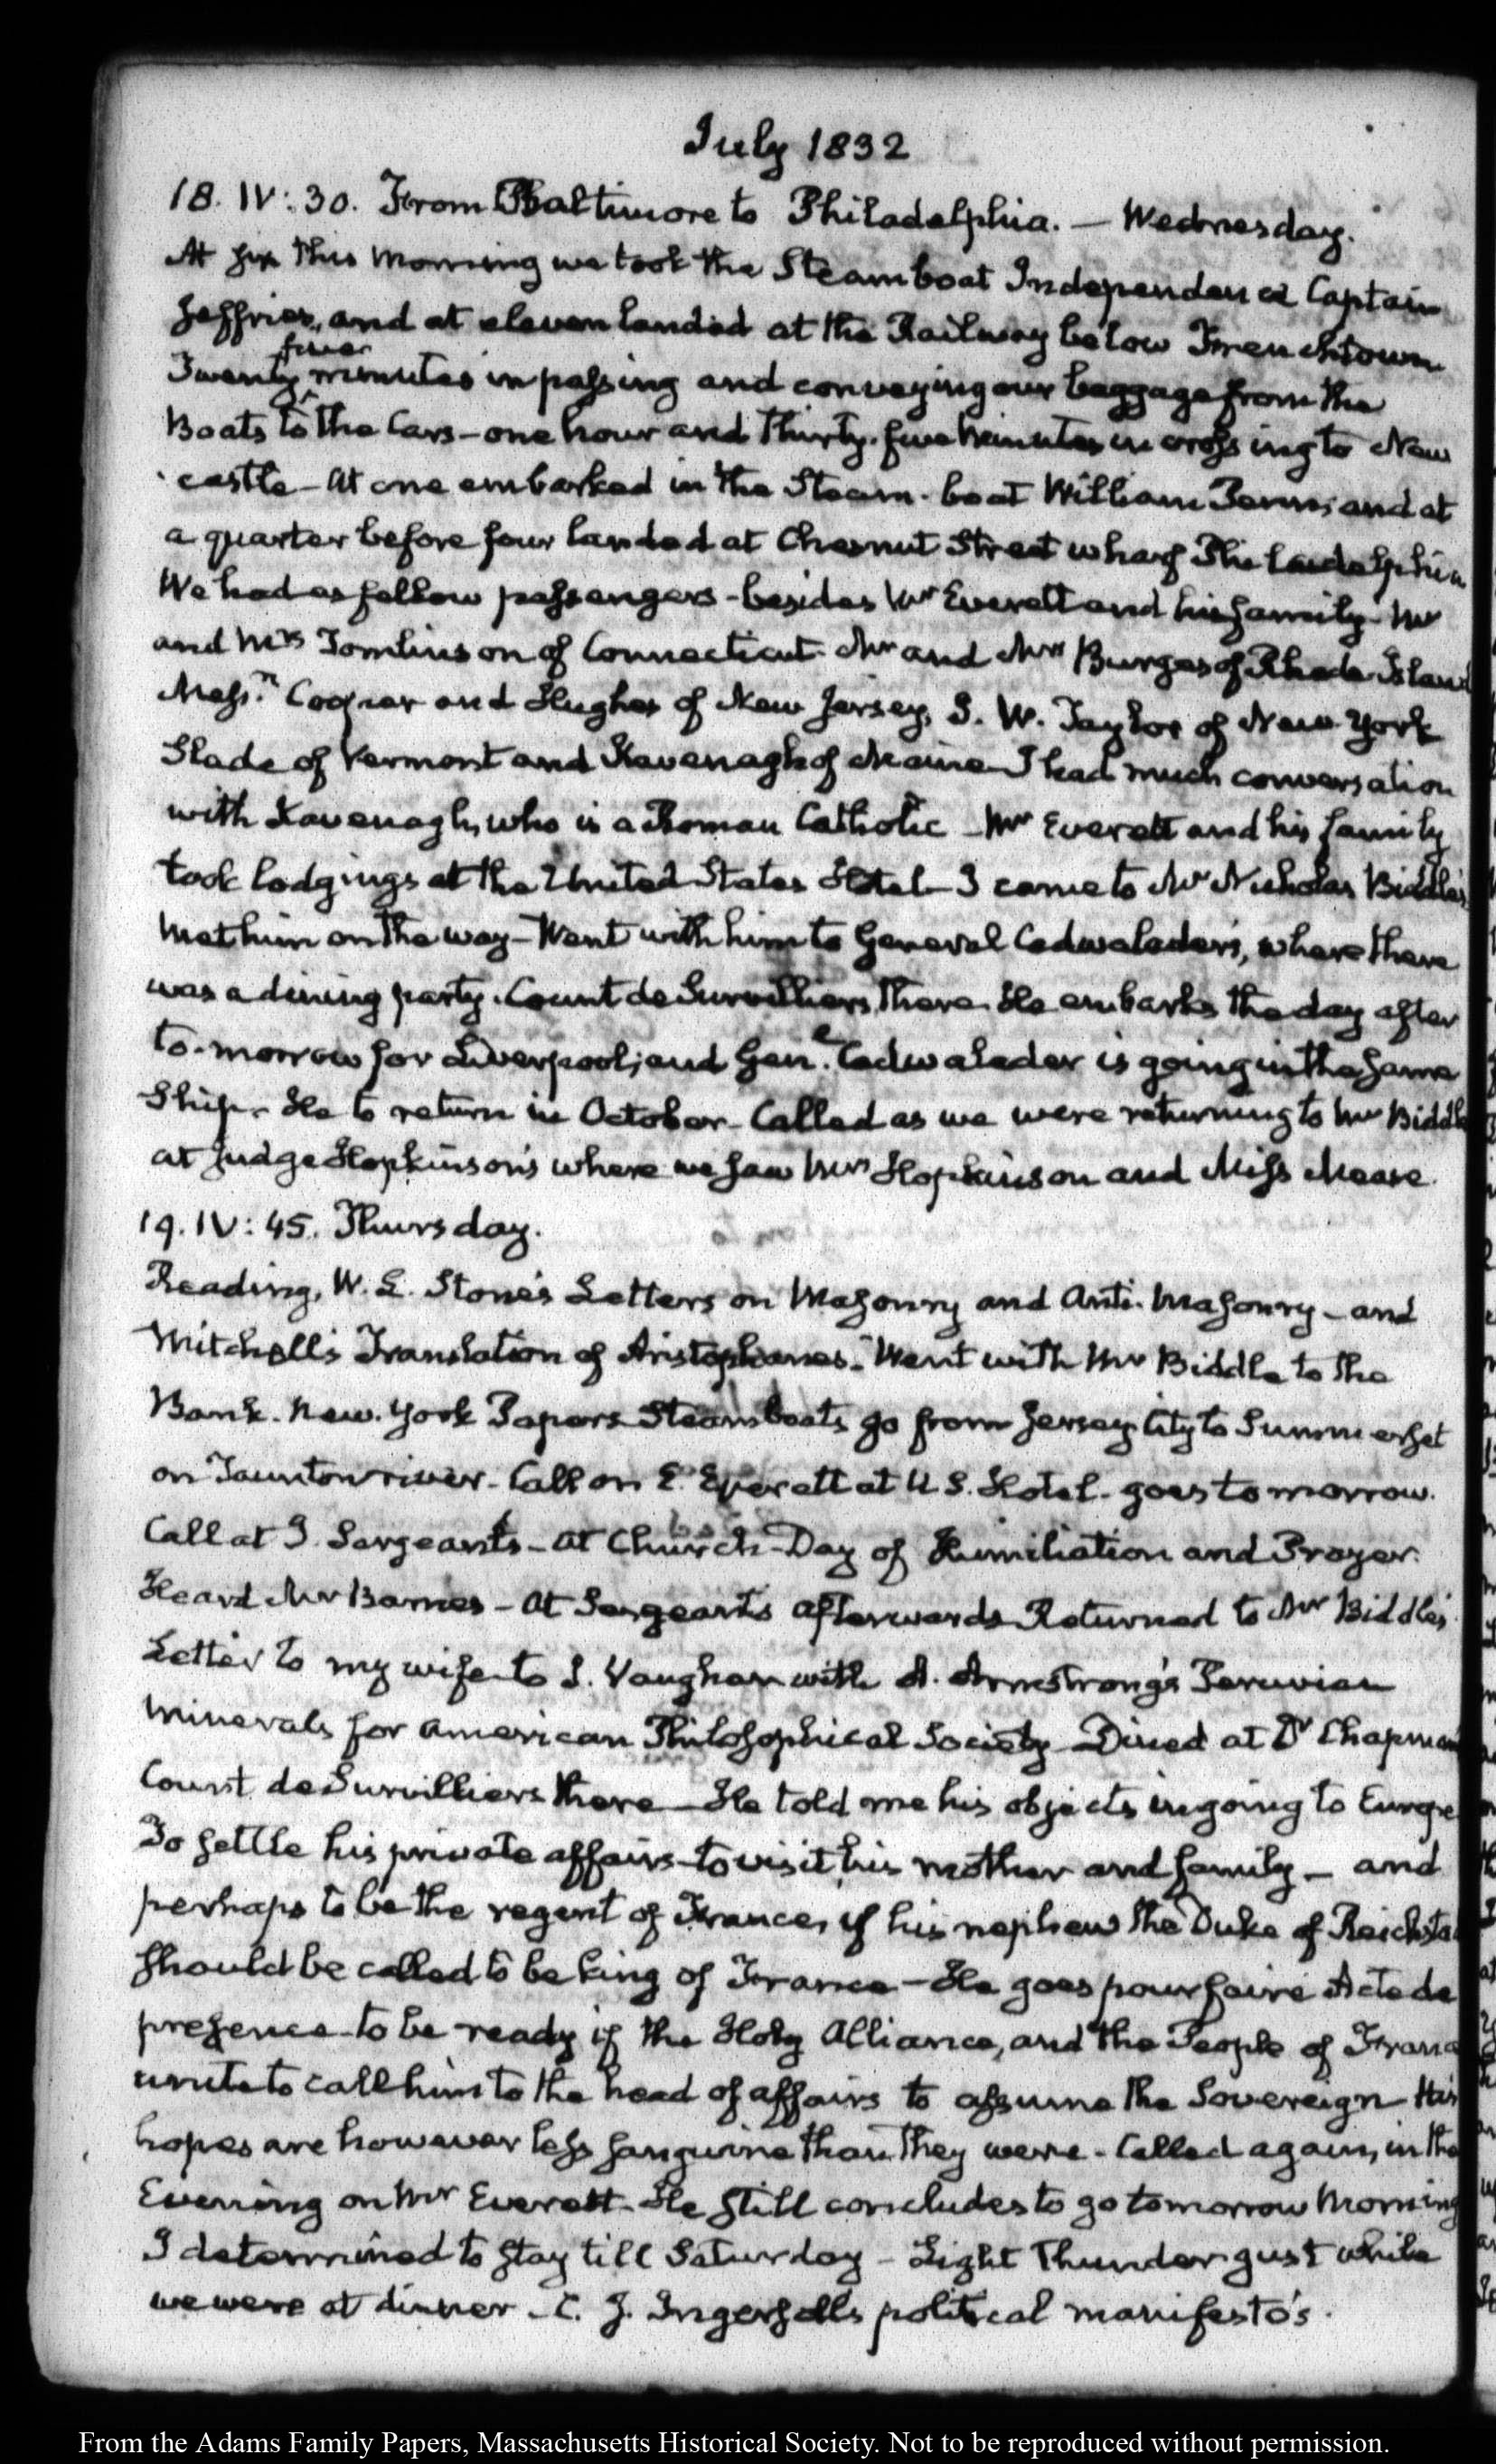 July 1832
18. IV:30. From Baltimore to Philadelphia. — Wednesday.
At six this morning we took the Steamboat Independence Captain
Jeffries, and at eleven landed at the Railway below Frenchtown
five
Twenty minutes in passing and conveying our baggage from the
Boats to the Cars — one hour and thirty-five minutes in crossing to New
castle — At one embarked in the Steam-boat William Penn; and at
a quarter before four landed at Chesnut Street wharf Philadelphia
We had as fellow passengers — besides Mr Everett and his family — Mr
and Mrs Tomlinson of Connecticut — Mr and Mrs Burges of Rhode Island
Messrs and Hughes of New Jersey, J. W. Taylor of New York
Slade of Vermont and Kavenagh of Maine — I had much conversation
with Kavenagh, who is a Roman Catholic — Mr Everett and his family
took lodgings at the United States Hotel — I came to Mr Nicholas Biddle's
Met him on the way — Went with him to General Cadwalader's, where there
was a dining party. Count de Survilliers there. He embarks the day after
to-morrow for Liverpool; and Genl. Cadwalader is going in the same
Ship. He to return in October — Called as we were returning to Mr Biddle
at Judge Hopkinson's where we saw Mrs Hopkinson and Miss Mease.
19. IV:45. Thursday.
Reading, W. L. Stone's Letters on Masonry and Anti-Masonry — and
Mitchell's Translation of Aristophanes — Went with Mr Biddle to the
Bank. New-York Papers Steamboats go from Jersey City to Summerset
on Taunton river — Call on E. Everett at U.S. Hotel — goes tomorrow.
Call at J. Sergeant's — At Church — Day of Humiliation and Prayer.
Heard Mr Barnes — At Sergeant's afterwards Returned to Mr Biddle's.
Letter to my wife — to J. Vaughan with A. Armstrong's Peruvian
minerals for American Philosophical Society — Dined at Dr Chapman
Count de Survilliers there — He told me his objects in going to Europe
To settle his private affairs — to visit his mother and family — and
perhaps to be the regent of France, if his nephew the Duke of Reichsta
should be called to be king of France — He goes pour faire Acte de
presence — to be ready if the Holy Alliance, and the People of France
unite to call him to the head of affairs to assume the Sovereign — His
hopes are however less sanguine than they were — Called again, in the
Evening on Mr Everett — He still concludes to go tomorrow Morning
I determined to stay till Saturday — Light Thunder gust while
we were at dinner — C. J. Ingersoll's political manifesto's.
From the Adams Family Papers, Massachusetts Historical Society. Not to be reproduced without permission.